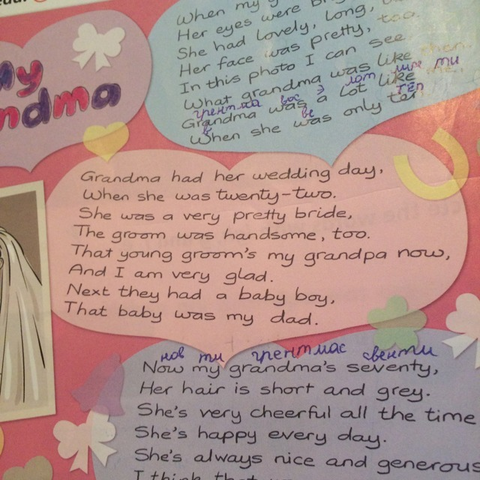 My
ndma
When my
Her eyes were
She had lovely, long,
Her face was pretty, too.
In this photo I can see
What grandma was like then.
грентмаа вос э лот лик ми
Grandma was a lot like me,
When she was only ten.
Grandma had her wedding day,
When she was twenty-two.
She was a very pretty bride,
The groom was handsome, too.
That young groom's my grandpa now,
And I am very glad.
Next they had a baby boy,
That baby was my dad.
нов ти грентмас свенти
Now my grandma's seventy,
Her hair is short and grey.
She's very cheerful all the time
She's happy every day.
She's always nice and generous
I think that